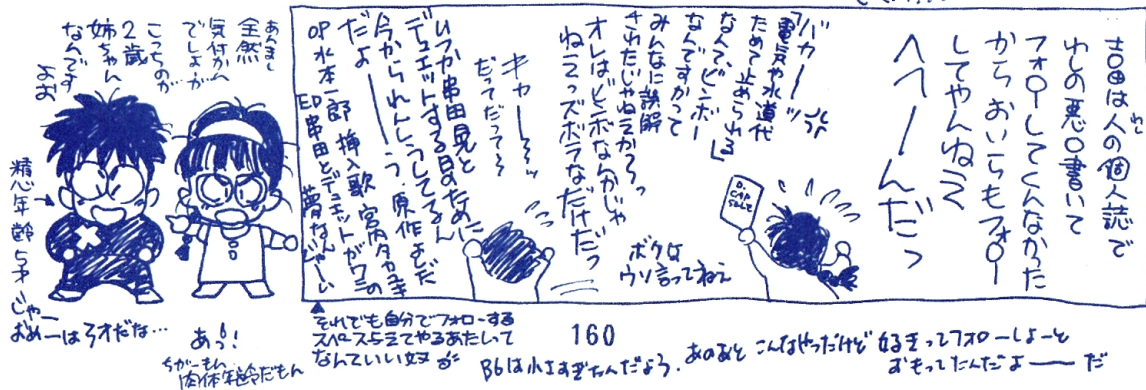 吉田は人の個人誌で
わしの悪口書いて
フォローしてくんなかった
からおいらもフォロー
してやんねえ
へへーんだっ
バカーッ
「電気や水道代
ためて止められる
なんて、ビンボー
なんですかって」
みんなに誤解
されたじゃねえか〜っ
オレはビンボなんかじゃ
ねえっズボラなだけだっ
ボクは
ウソ言ってねえ
キャー〜〜
だってだって〜
いつか串田晃と
デュエットする日のために
今かられんしうしてるん
だよーーう.原作よむだ
OP水木一郎 挿入歌 宮内タカユキ
ED串田とデュエットがワシの
夢なんじゃーい
あんまし
全然
気付かん
でしょが
こっちのが
2歳
姉ちゃん
なんです
よお
精心年齢5才
じゃー
おめーは3才だな…
あっ!
ちがーもん
肉体年齢だもん
それでも自分でフォローする
スペース与えてやるあたいって
なんていい奴
160
B6は小さすぎたんだよう.
あのあと こんなやつだけど 好きってフォローしよーと
おもってたんだよーー だ